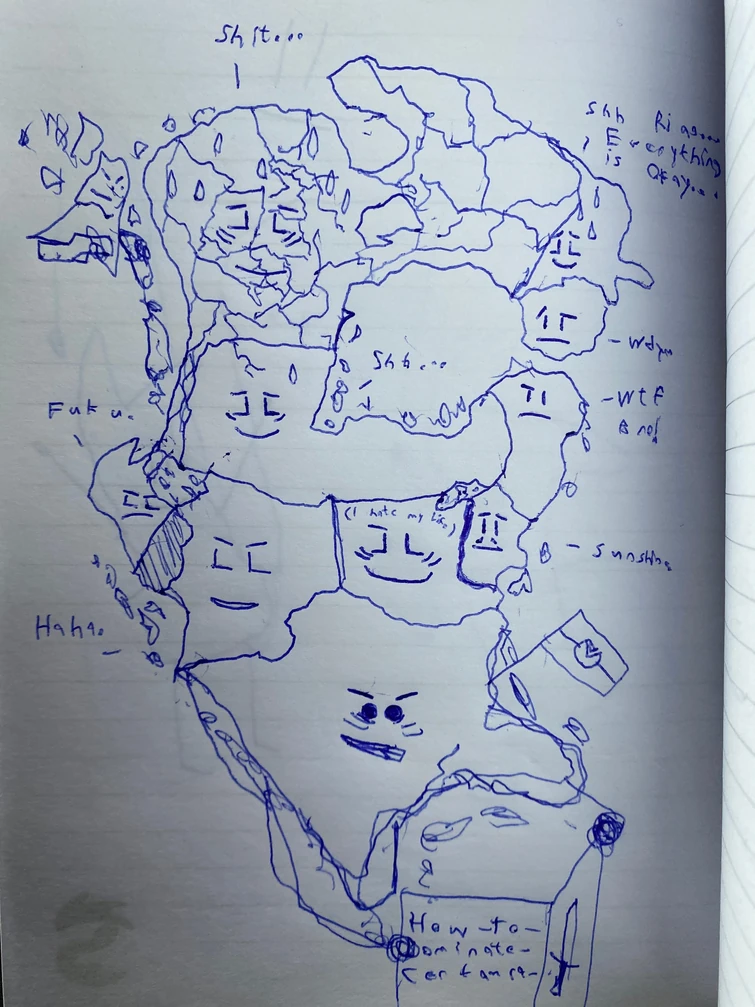 Shit...
Shh Rias...
Everything
is
Okay...
Shh...
Fuku.
- WTF
(I hate my life)
- Sunshine
Haha.
How-to-
Dominate-